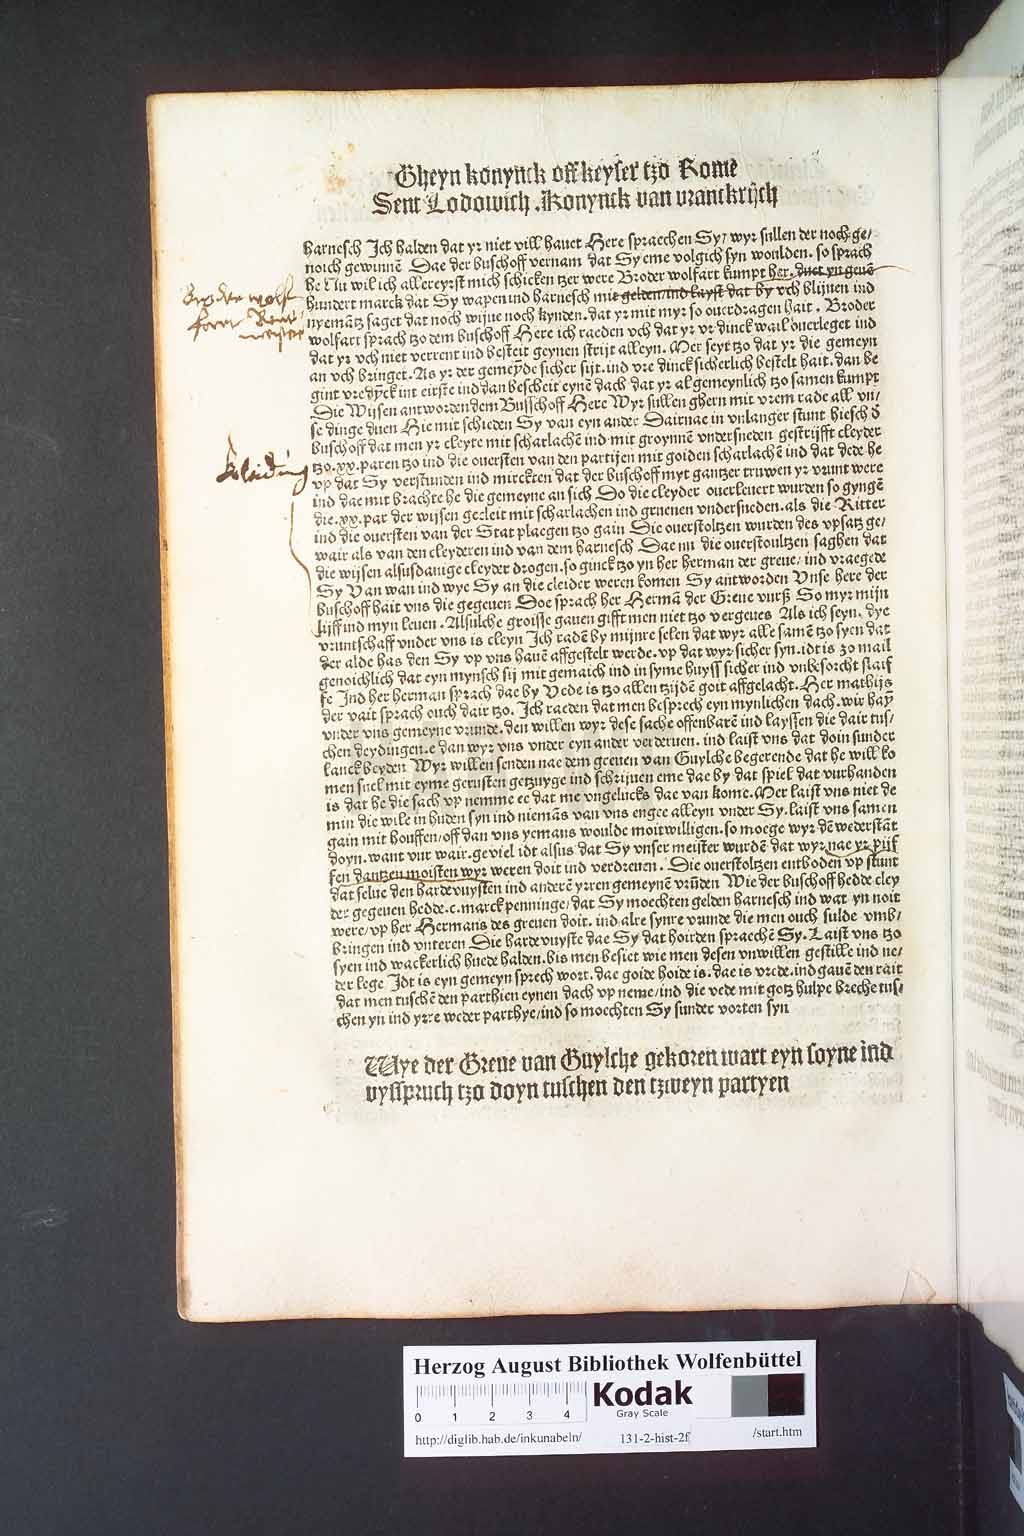 Gheyn konynck off keyser tzo Rome
Sent Lodowich .Konynck van vranckrijch
harnesch Ich halden dat yr niet vill hauet Here spraechen Sy/ wyr sullen der noch ge/
noich gewinnē Dae der buschoff vernam dat Sy eme volgich syn woulden. so sprach
he Nu wil ich allereyrst mich schicken tzer were Broder wolfart kumpt her. duet yn geuē
hundert marck dat Sy wapen ind harnesch mit gelden/ind layst dat by vch blijuen ind
nyemātz saget dat noch wijue noch kynden. dat yr mit myr so ouerdragen hait . Broder
wolfart sprach tzo dem buschoff Here ich raeden vch dat yr vr dinck wail ouerleget ind
dat yr vch niet verrent ind besteit geynen strijt alleyn. Mer seyt tzo dat yr die gemeyn
an vch bringet. As yr der gemeyde sicher sijt. ind vre dinck sicherlich bestelt hait. dan be
gint vre dyck int eirste ind dan bescheit eynē dach dat yr al gemeynlich tzo samen kumpt
Die Wijsen antworden dem Busschoff Here Wyr sullen ghern mit vrem rade all vn/
se dinge duen Hie mit schieden Sy van eyn ander Dairnae in vnlanger stunt hiesch d̄
buschoff dat men yr cleyte mit scharlachē ind mit groynnē vndersneden gestrijfft cleyder
tzo .xx. paren tzo ind die ouersten van den partijen mit goiden scharlachē ind dat dede he
vp dat Sy verstunden ind mirckten dat der buschoff myt gantzer truwen yr vrunt were
ind dae mit brachte he die gemeyne an sich Do die cleyder ouerleuert wurden so gyngē
die .xx. par der wijsen gecleit mit scharlachen ind gruenen vndersneden. als die Ritter
ind die ouersten van der Stat plaegen tzo gain Die ouerstoltzen wurden des vpsatz ge/
wair als van den cleyderen ind van dem harnesch Dae nu die ouerstoultzen saghen dat
die wijsen alsusdanige cleyder drogen. so ginck tzo yn her herman der greue/ ind vraegede
Sy Van wan ind wye Sy an die cleider weren komen Sy antworden Vnse here der
buschoff hait vns die gegeuen Doe sprach her Hermā der Greue vurß So myr mijn
lijff ind myn leuen . Alsulche groisse gauen gifft men niet tzo vergeues Als ich seyn. dye
vruntschaff vnder vns is cleyn Ich radē by mijnre selen dat wyr alle samē tzo syen dat
der alde has den Sy vp vns hauē affgestelt werde. vp dat wyr sicher syn. idt is zo mail
genoichlich dat eyn mynsch sij mit gemaich ind in syme huyss sicher ind vnbesorcht slaif
fe Ind her herman sprach dae by Vede is tzo allen tzijdē goit affgelacht. Her mathijs
der vait sprach ouch dair tzo. Ich raeden dat men besprech eyn mynlichen dach. wir hay
vnder vns gemeyne vrunde. den willen wyr dese sache offenbarē ind layssen die dair tus/
chen deydingen. e dan wyr vns vnder eyn ander verderuen. ind laist vns dat doin sunder
lanck beyden Wyr willen senden nae dem greuen van Guylche begerende dat he will ko
men snel mit eyme gerusten getzuyge ind schrijuen eme dae by dat spiel dat vurhanden
is dat he die sach vp nemme ee dat me vngelucks dae van kome. Mer laist vns niet de
min die wile in huden syn ind niemās van vns engee alleyn vnder Sy. laist vns samen
gain mit houffen/off dan vns yemans woulde moitwilligen. so moege wyr dē wederstāt
doyn. want vur wair. geviel idt alsus dat Sy vnser meister wurdē dat wyr nae yr pijf
fen dantzen moisten wyr weren doit ind verdreuen . Die ouerstoltzen entboden vp stunt
dat selue den hardevuysten ind anderē yrren gemeynē vrūden Wie der buschoff hedde cley
der gegeuen hedde .c. marck penninge/ dat Sy moechten gelden harnesch ind wat yn noit
were/ vp her Hermans des greuen doit. ind alre synre vrunde die men ouch sulde vmb/
bringen ind vnteren Die hardevuyste dae Sy dat hoirden spraechē Sy. Laist vns tzo
syen ind wackerlich huede halden. bis men besiet wie men desen vnwillen gestille ind ne/
der lege Idt is eyn gemeyn sprech wort. dae goide hoide is. dae is vrede. ind gauē den rait
dat men tuschē den parthien eynen dach vp neme/ ind die vede mit gotz hulpe breche tus/
chen yn ind yrre weder parthye/ ind so moechten Sy sunder vorten syn
Wye der Greue van Guylche gekoren wart eyn soyne ind
vysspruch tzo doyn tuschen den tzweyn partyen
Kleidung
Herzog August Bibliothek Wolfenbüttel
0 1 2 3 4
Kodak
Gray Scale
http://diglib.hab.de/inkunabeln/ 131-2-hist-2f /start.htm